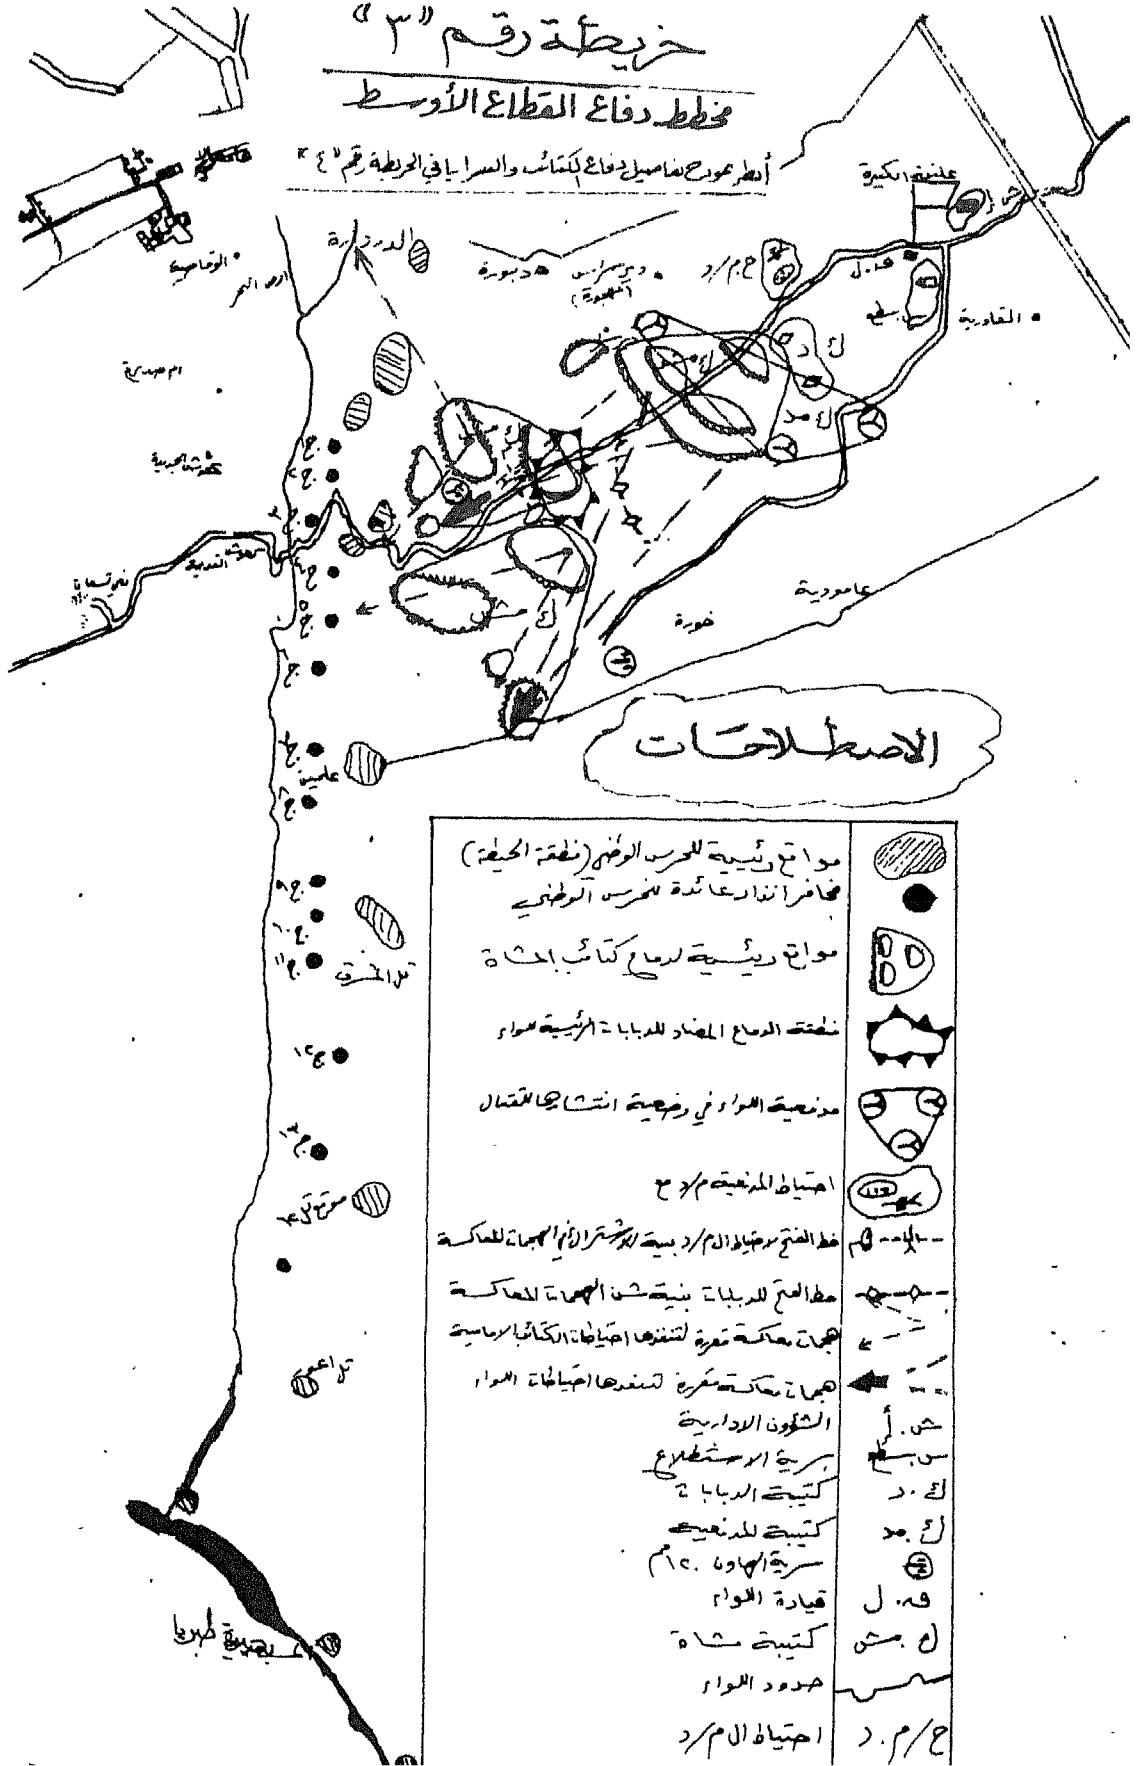 خريطة رقم "٣"
مخطط دفاع القطاع الأوسط
أنظر نموذج تفاصيل دفاع الكتائب والسرايا في الخريطة رقم "٤"
عليقة الكبيرة
ش.أ
الدردارة
دبورة
ح.م/د
ق.ل
س.سطع
المقاورية
ك.د
ك.مد
ك مش
ك مش
ك مش
ج١
ج٢
ج٣
ج٤
ج٥
ج٦
ج٧
ج٨
ج٩
ج١٠
ج١١
ج١٢
ج١٣
عامودية
خورة
علمين
الاصطلاحات
مواقع رئيسية للحرس الوطني (منطقة الحيطة)
مخافر انذار عائدة للحرس الوطني
مواقع رئيسية لدفاع كتائب المشاة
منطقة الدفاع المضاد للدبابات الرئيسية للواء
مدفعية اللواء في وضعية انتشارها للقتال
احتياط المدفعية م/د مع
خط الفتح لاحتياط ال م/د بنية الاشتراك في الهجمات المعاكسة
خط الفتح للدبابات بنية شن الهجمات المعاكسة
هجمات معاكسة مقررة لتنفذها احتياطات الكتائب الامامية
هجمات معاكسة مقررة لتنفذها احتياطات اللواء
ش.أ الشؤون الادارية
س.سطع سرية الاستطلاع
ك.د كتيبة الدبابات
ك.مد كتيبة المدفعية
سرية الهاون ١٢٠مم
ق.ل قيادة اللواء
ك.مش كتيبة مشاة
حدود اللواء
ح/م.د احتياط ال م/د
بحيرة طبريا